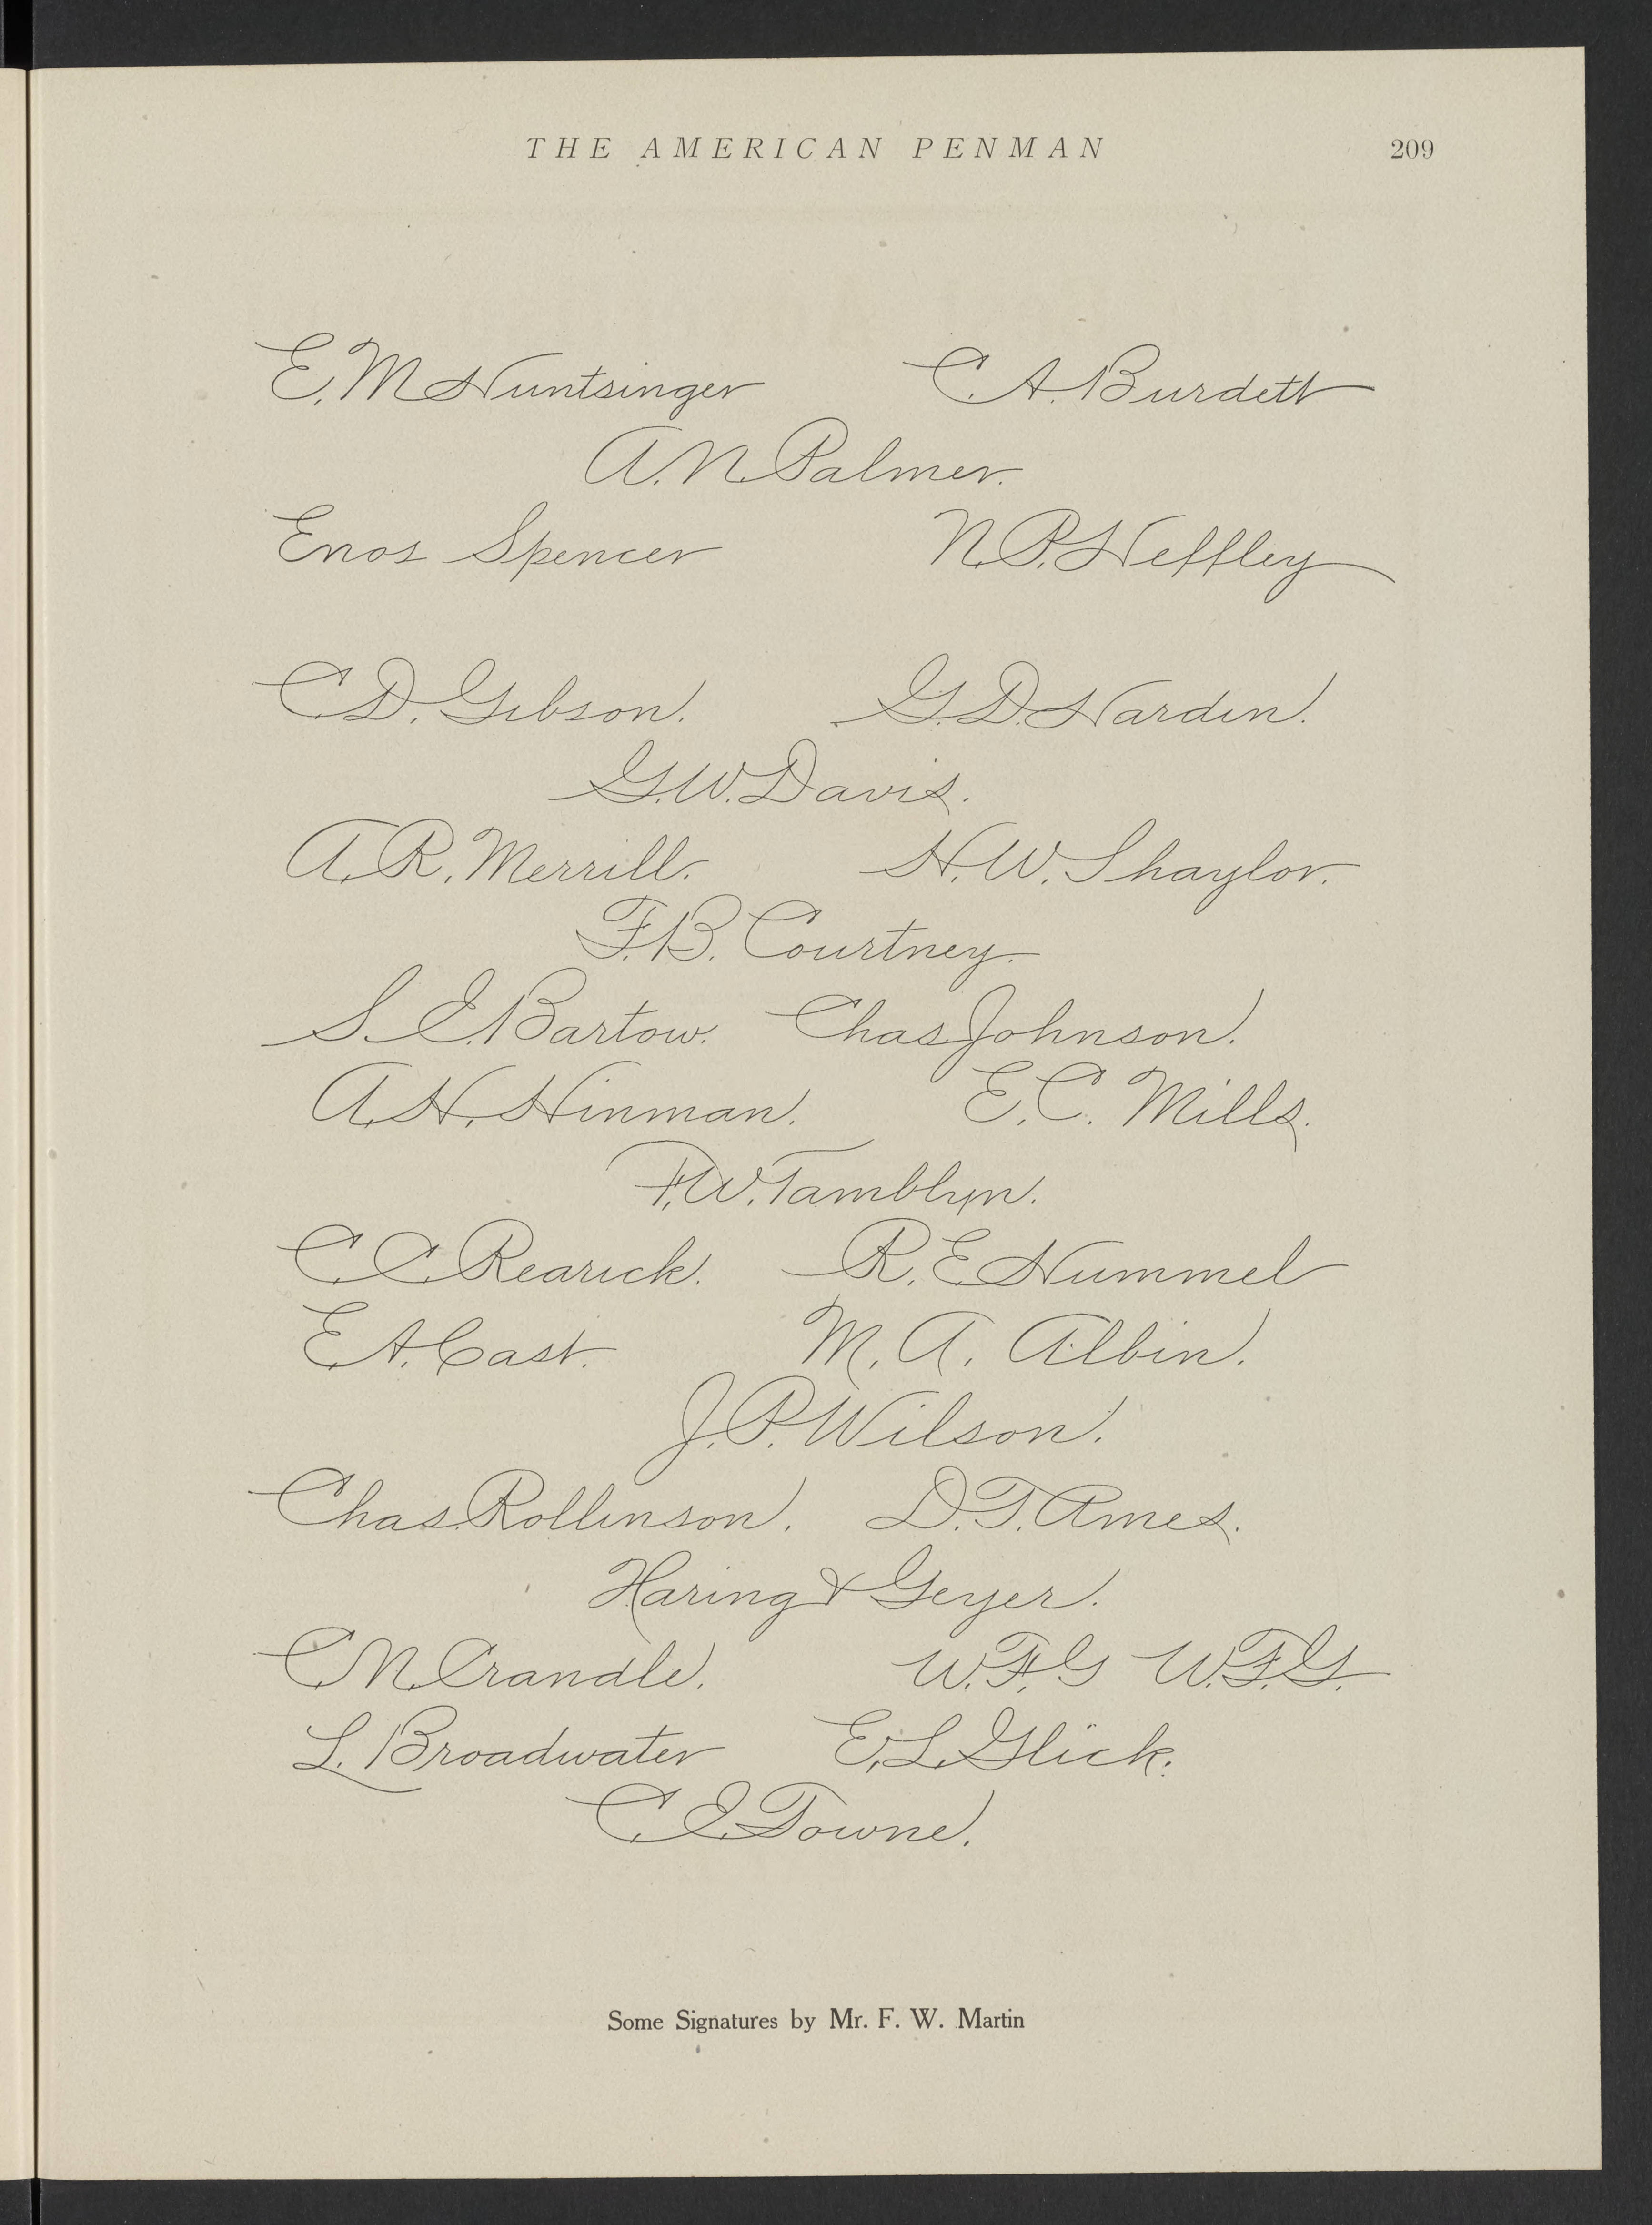 THE AMERICAN PENMAN 209
E. M Huntsinger C. A. Burdett
A. N. Palmer.
Enos Spencer N. P. Heffley
C D. Gibson. G. D. Hardin.
G. W. Davis.
A. R. Merrill. H. W. Shaylor.
F. B. Courtney.
S. E. Bartow. Chas Johnson.
A. H. Hinman. E. C. Mills.
F. W. Tamblyn.
C. C. Rearick. R. E. Hummel
E A. Cast. M. A. Albin.
J. P. Wilson.
Chas. Rollinson. D. T. Ames.
Haring & Geyer.
C N. Crandle. W. F. G W. F. G.
L. Broadwater E. L. Glick.
C E. Towne.
Some Signatures by Mr. F. W. Martin